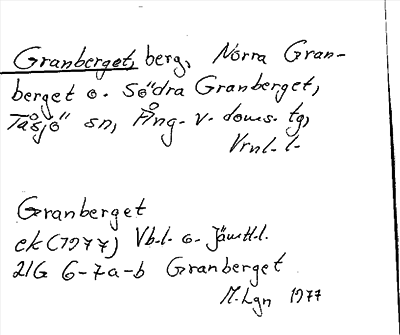 Granberget, berg, Norra Gran-
berget o. Södra Granberget,
Tåsjö sn, Ång. v. doms. tg,
Vrnl. l.
Granberget
ek (1977) Vb.l. o. Jämtl.l.
21G 6-7a-b Granberget
M. Lgn 1977